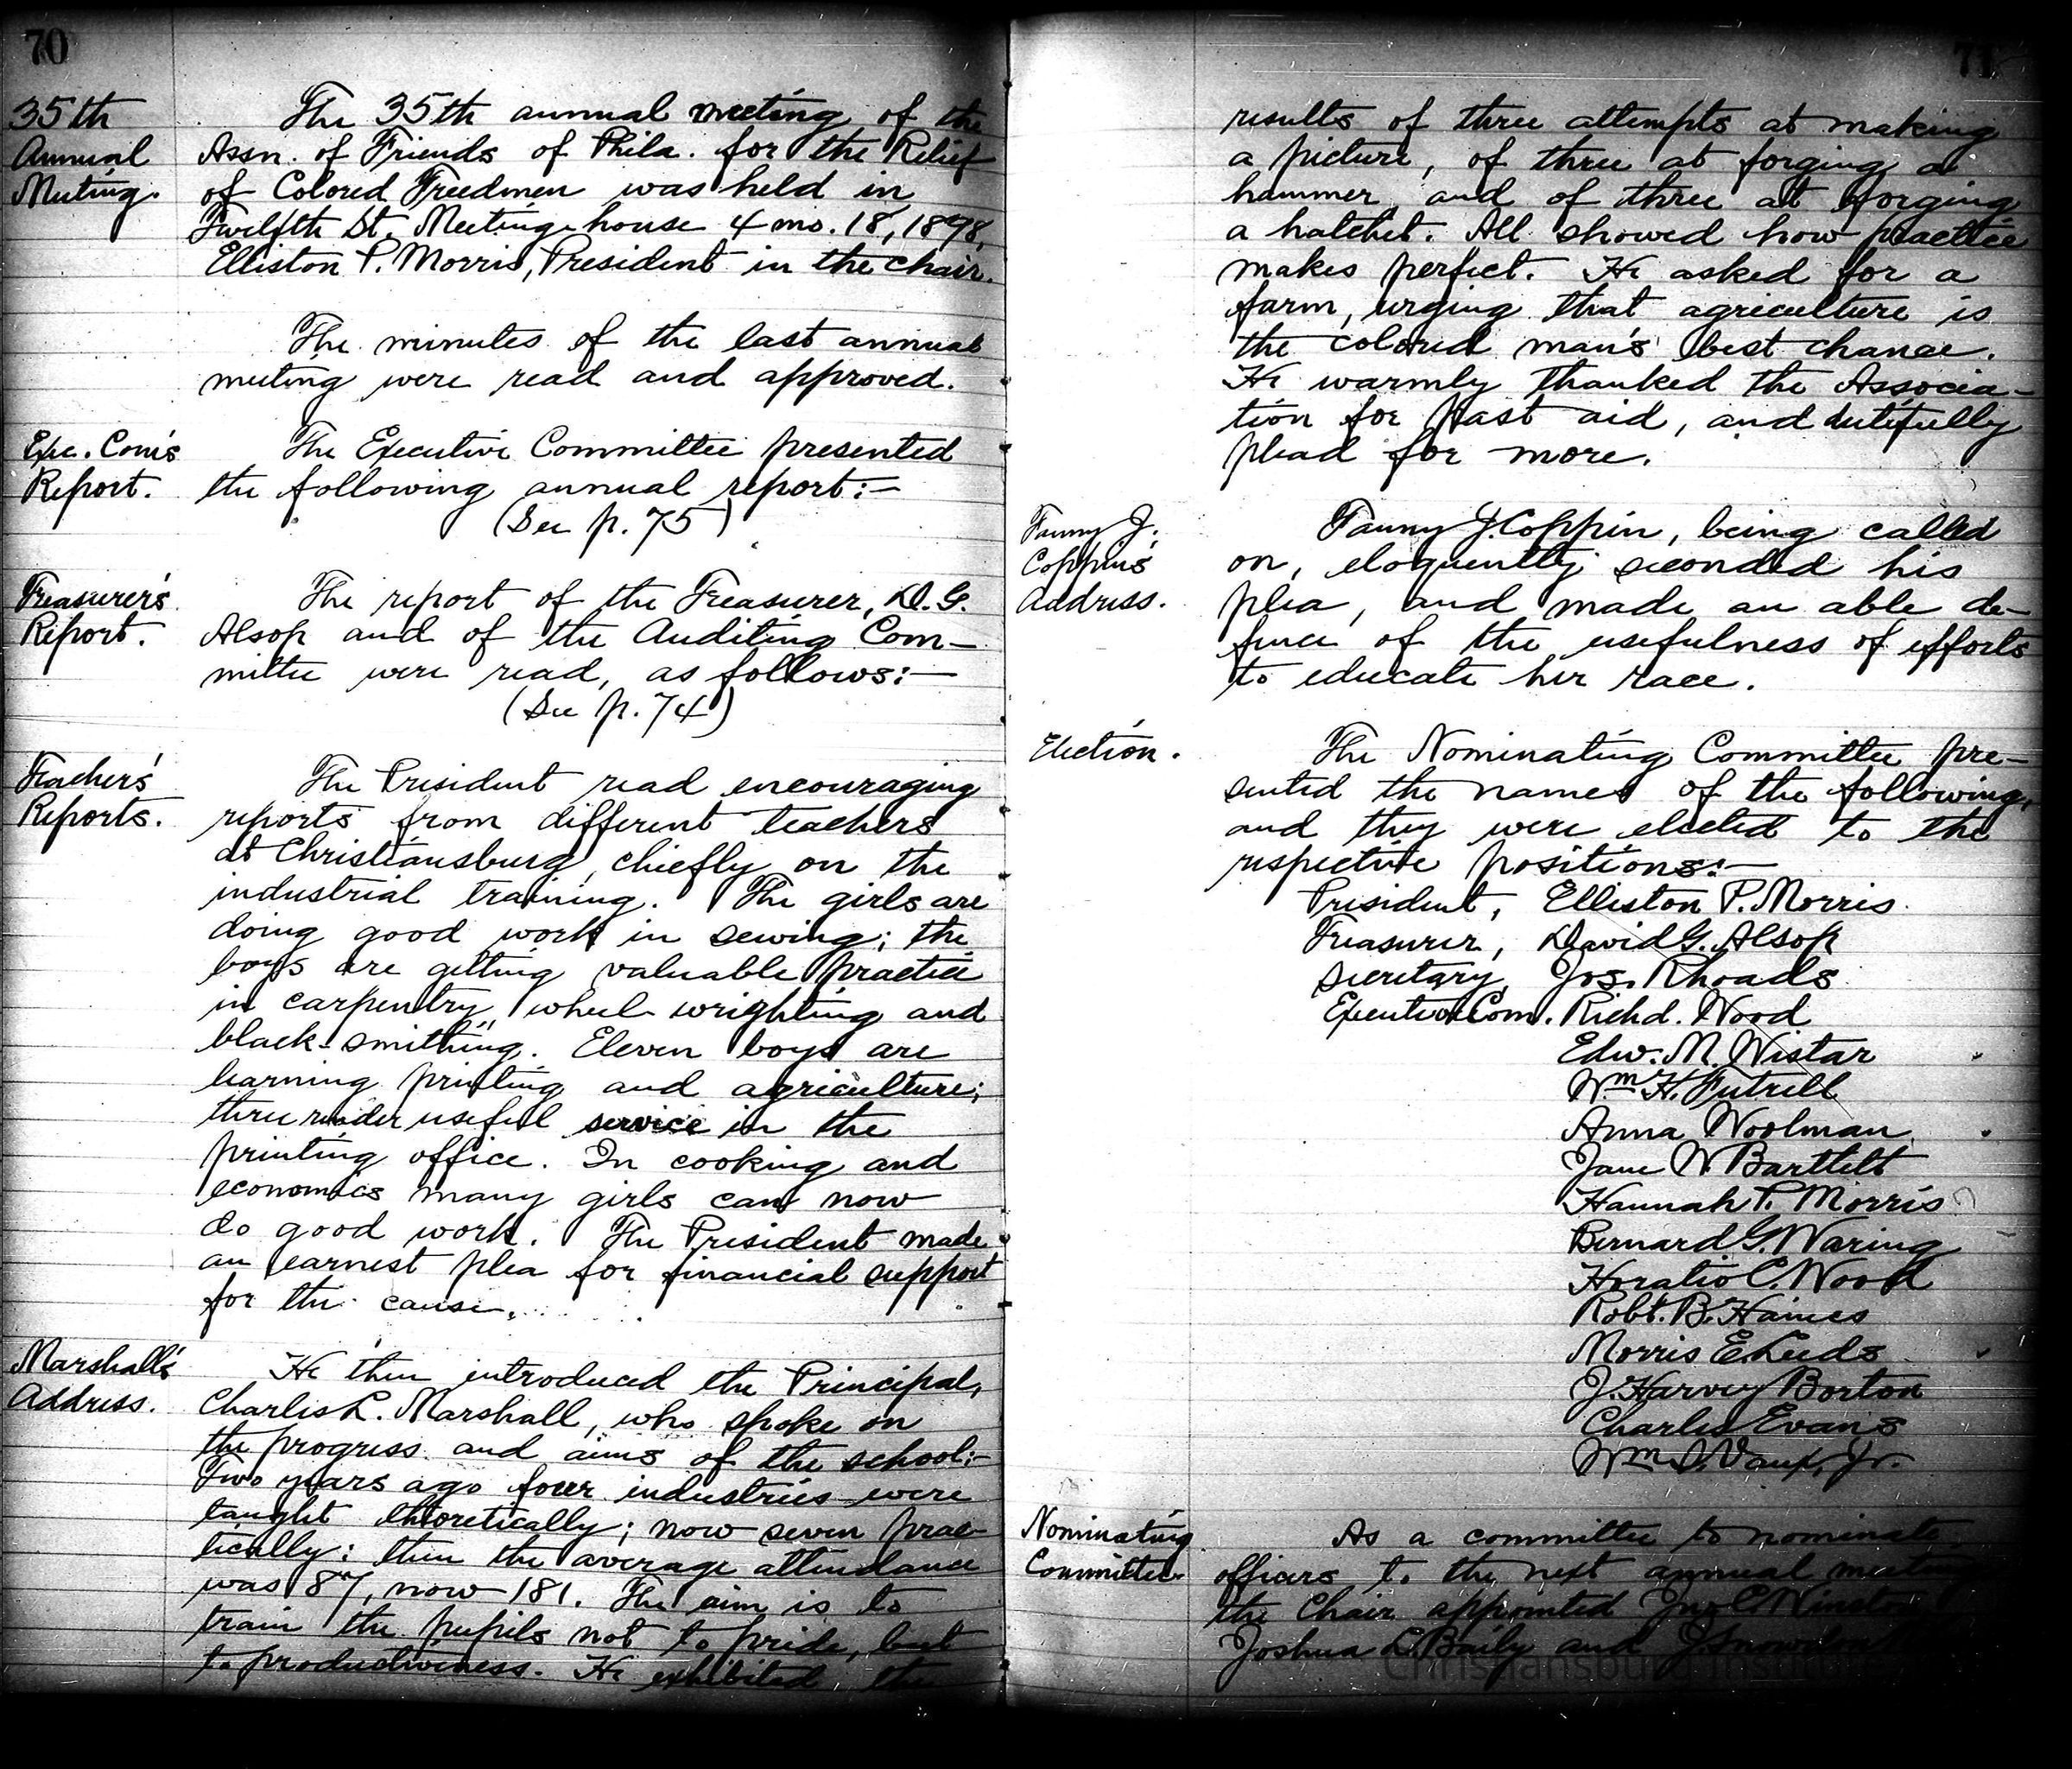 70
35th
Annual
Meeting.
The 35th annual meeting of the
Assn. of Friends of Phila. for the Relief
of Colored Freedmen was held in
Twelfth St. Meeting-house 4 mo. 18, 1898,
Elliston P. Morris, President in the chair.
The minutes of the last annual
meeting were read and approved.
Exec. Com's
Report.
The Executive Committee presented
the following annual report:—
(See p. 75)
Treasurer's
Report.
The report of the Treasurer, D. G.
Alsop and of the Auditing Com-
mittee were read, as follows:—
(See p. 74)
Teachers'
Reports.
The President read encouraging
reports from different teachers
at Christiansburg, chiefly on the
industrial training. The girls are
doing good work in sewing; the
boys are getting valuable practice
in carpentry, wheel-wrighting and
black-smithing. Eleven boys are
learning printing and agriculture;
three render useful service in the
printing office. In cooking and
economics many girls can now
do good work. The President made
an earnest plea for financial support
for the cause.
Marshall's
Address.
He then introduced the Principal,
Charles L. Marshall, who spoke on
the progress and aims of the school:—
Two years ago four industries were
taught theoretically; now seven prac-
tically: then the average attendance
was 87, now 181. The aim is to
train the pupils not to pride, but
to productiveness. He exhibited the
71
results of three attempts at making
a picture, of three at forging a
hammer and of three at forging
a hatchet. All showed how practice
makes perfect. He asked for a
farm, urging that agriculture is
the colored man's best chance.
He warmly thanked the Associa-
tion for past aid, and dutifully
plead for more.
Fanny J.
Coppin's
Address.
Fanny J. Coppin, being called
on, eloquently seconded his
plea, and made an able de-
fence of the usefulness of efforts
to educate her race.
Election.
The Nominating Committee pre-
sented the names of the following,
and they were elected to the
respective positions:—
President, Elliston P. Morris.
Treasurer, David G. Alsop
Secretary, Jos. Rhoads
Executive Com. Richd. Wood
Edw. M. Wistar
Wm. H. Futrell
Anna Woolman
Jane W Bartlett
Hannah P. Morris
Bernard G. Waring
Horatio C. Wood
Robt. B. Haines
Morris E. Leeds
J. Harvey Borton
Charles Evans
Wm S. Vaux, Jr.
Nominating
Committee
As a committee to nominate
officers to the next annual meeting
the Chair appointed Jno C Winston
Joshua L. Baily and J. Snowdon
Christiansburg Institute